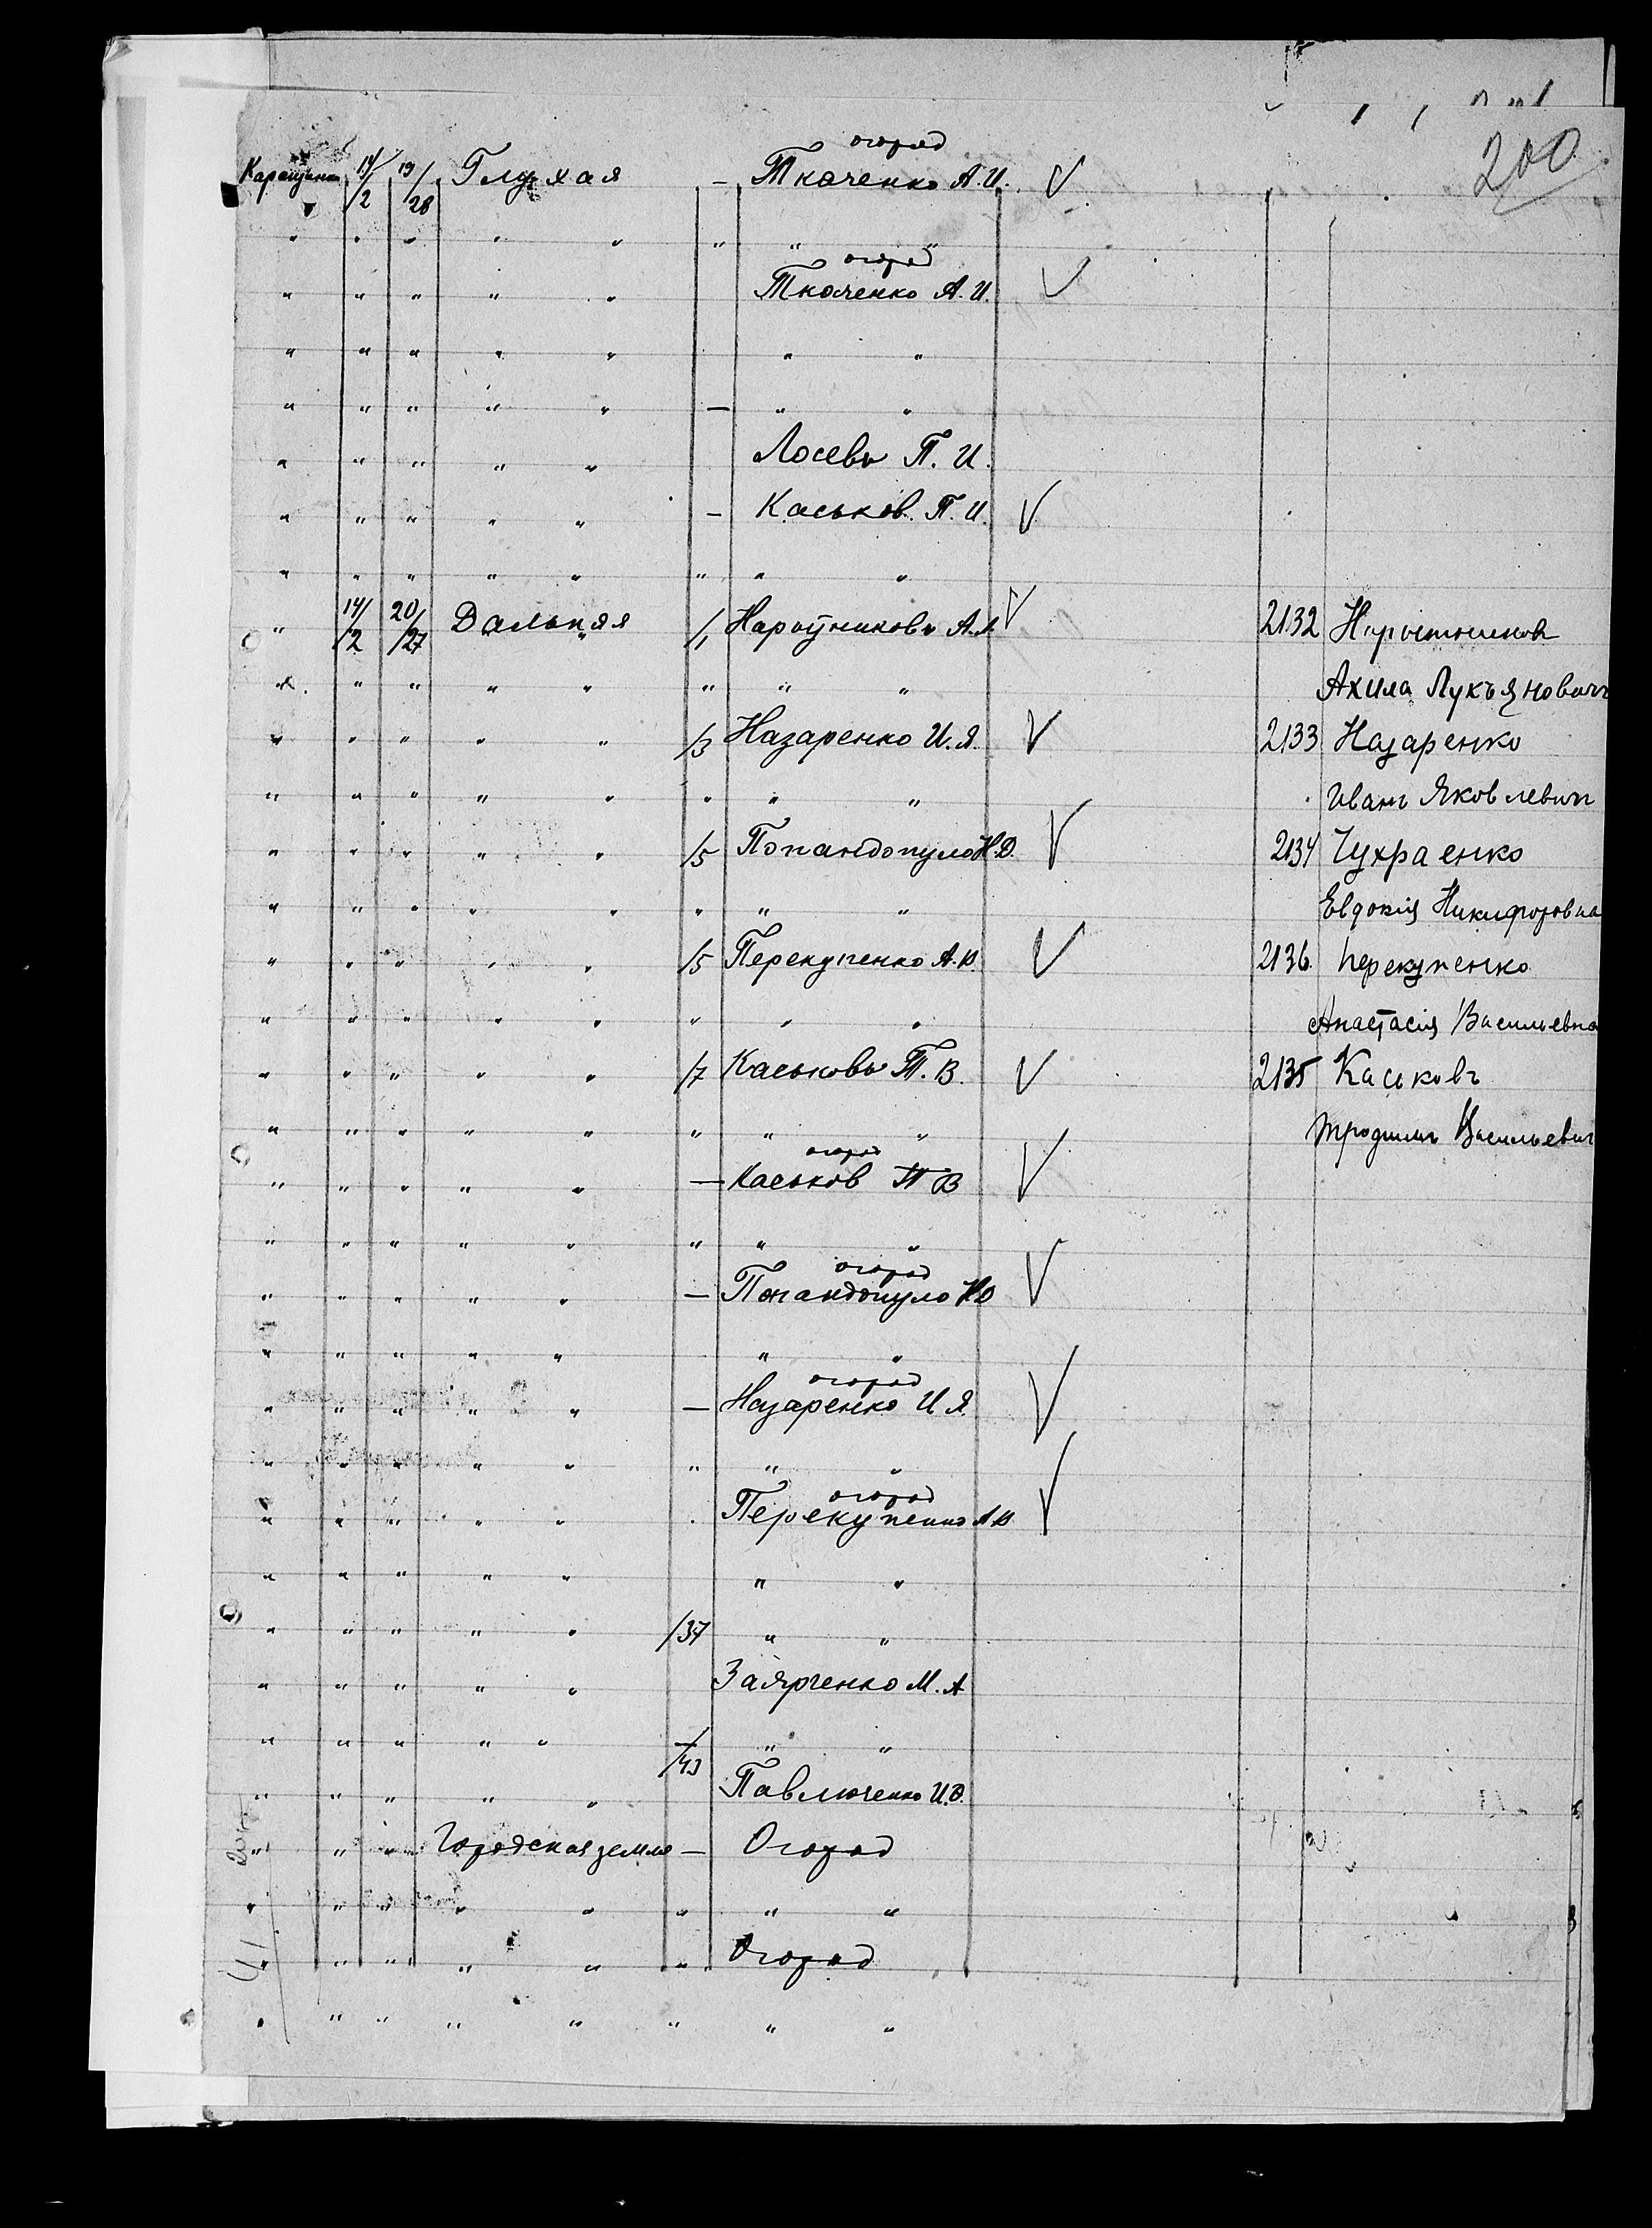 200
огород
14/ 19/ Глухая – Ткаченко А.И. V
/2 /28
" " " " " " " "
огород
" " " " " Ткаченко А.И. V
" " " " " " "
" " " " " – " "
" " " " " Лосевъ П. И.
" " " " " – Каськов. П. И. V
" " " " " " " "
" 14/2 20/27 Дальняя /1 А.Л. V 2132
" " " " " " " " Акила Лукъяновичъ
" " " " " /3 Назаренко И.Я. V 2133 Назаренко
" " " " " " " " Иванъ Яковлевич
" " " " " /5 Попандопуло Н.Д. V 2134 Чухраенко
" " " " " " " " Евдокія Никифоровна
" " " " " /5 Перекупенко А.В. V 2136. Перекупенко
" " " " " " " " Анастасія Васильевна
" " " " " /7 Каськовъ Т. В. V 2135 Каськовъ
" " " " " " " " Трофимъ Васильевич
огород
" " " " " – Каськов Т В V
" " " " " " " "
огород
" " " " " – Попандопуло НД V
" " " " " " "
огород
" " " " " – Назаренко И Я. V
" " " " " " " "
огород
" " " " " Перекупенко А В V
" " " " " " "
" " " " " /37 " "
" " " " " Заярченко М. А
" " " " " /43 " "
" " " " " Павлюченко И.Д.
" " " Городская земля – Огород
" " " " " " " "
" " " " " " Огород
" " " " " " " "